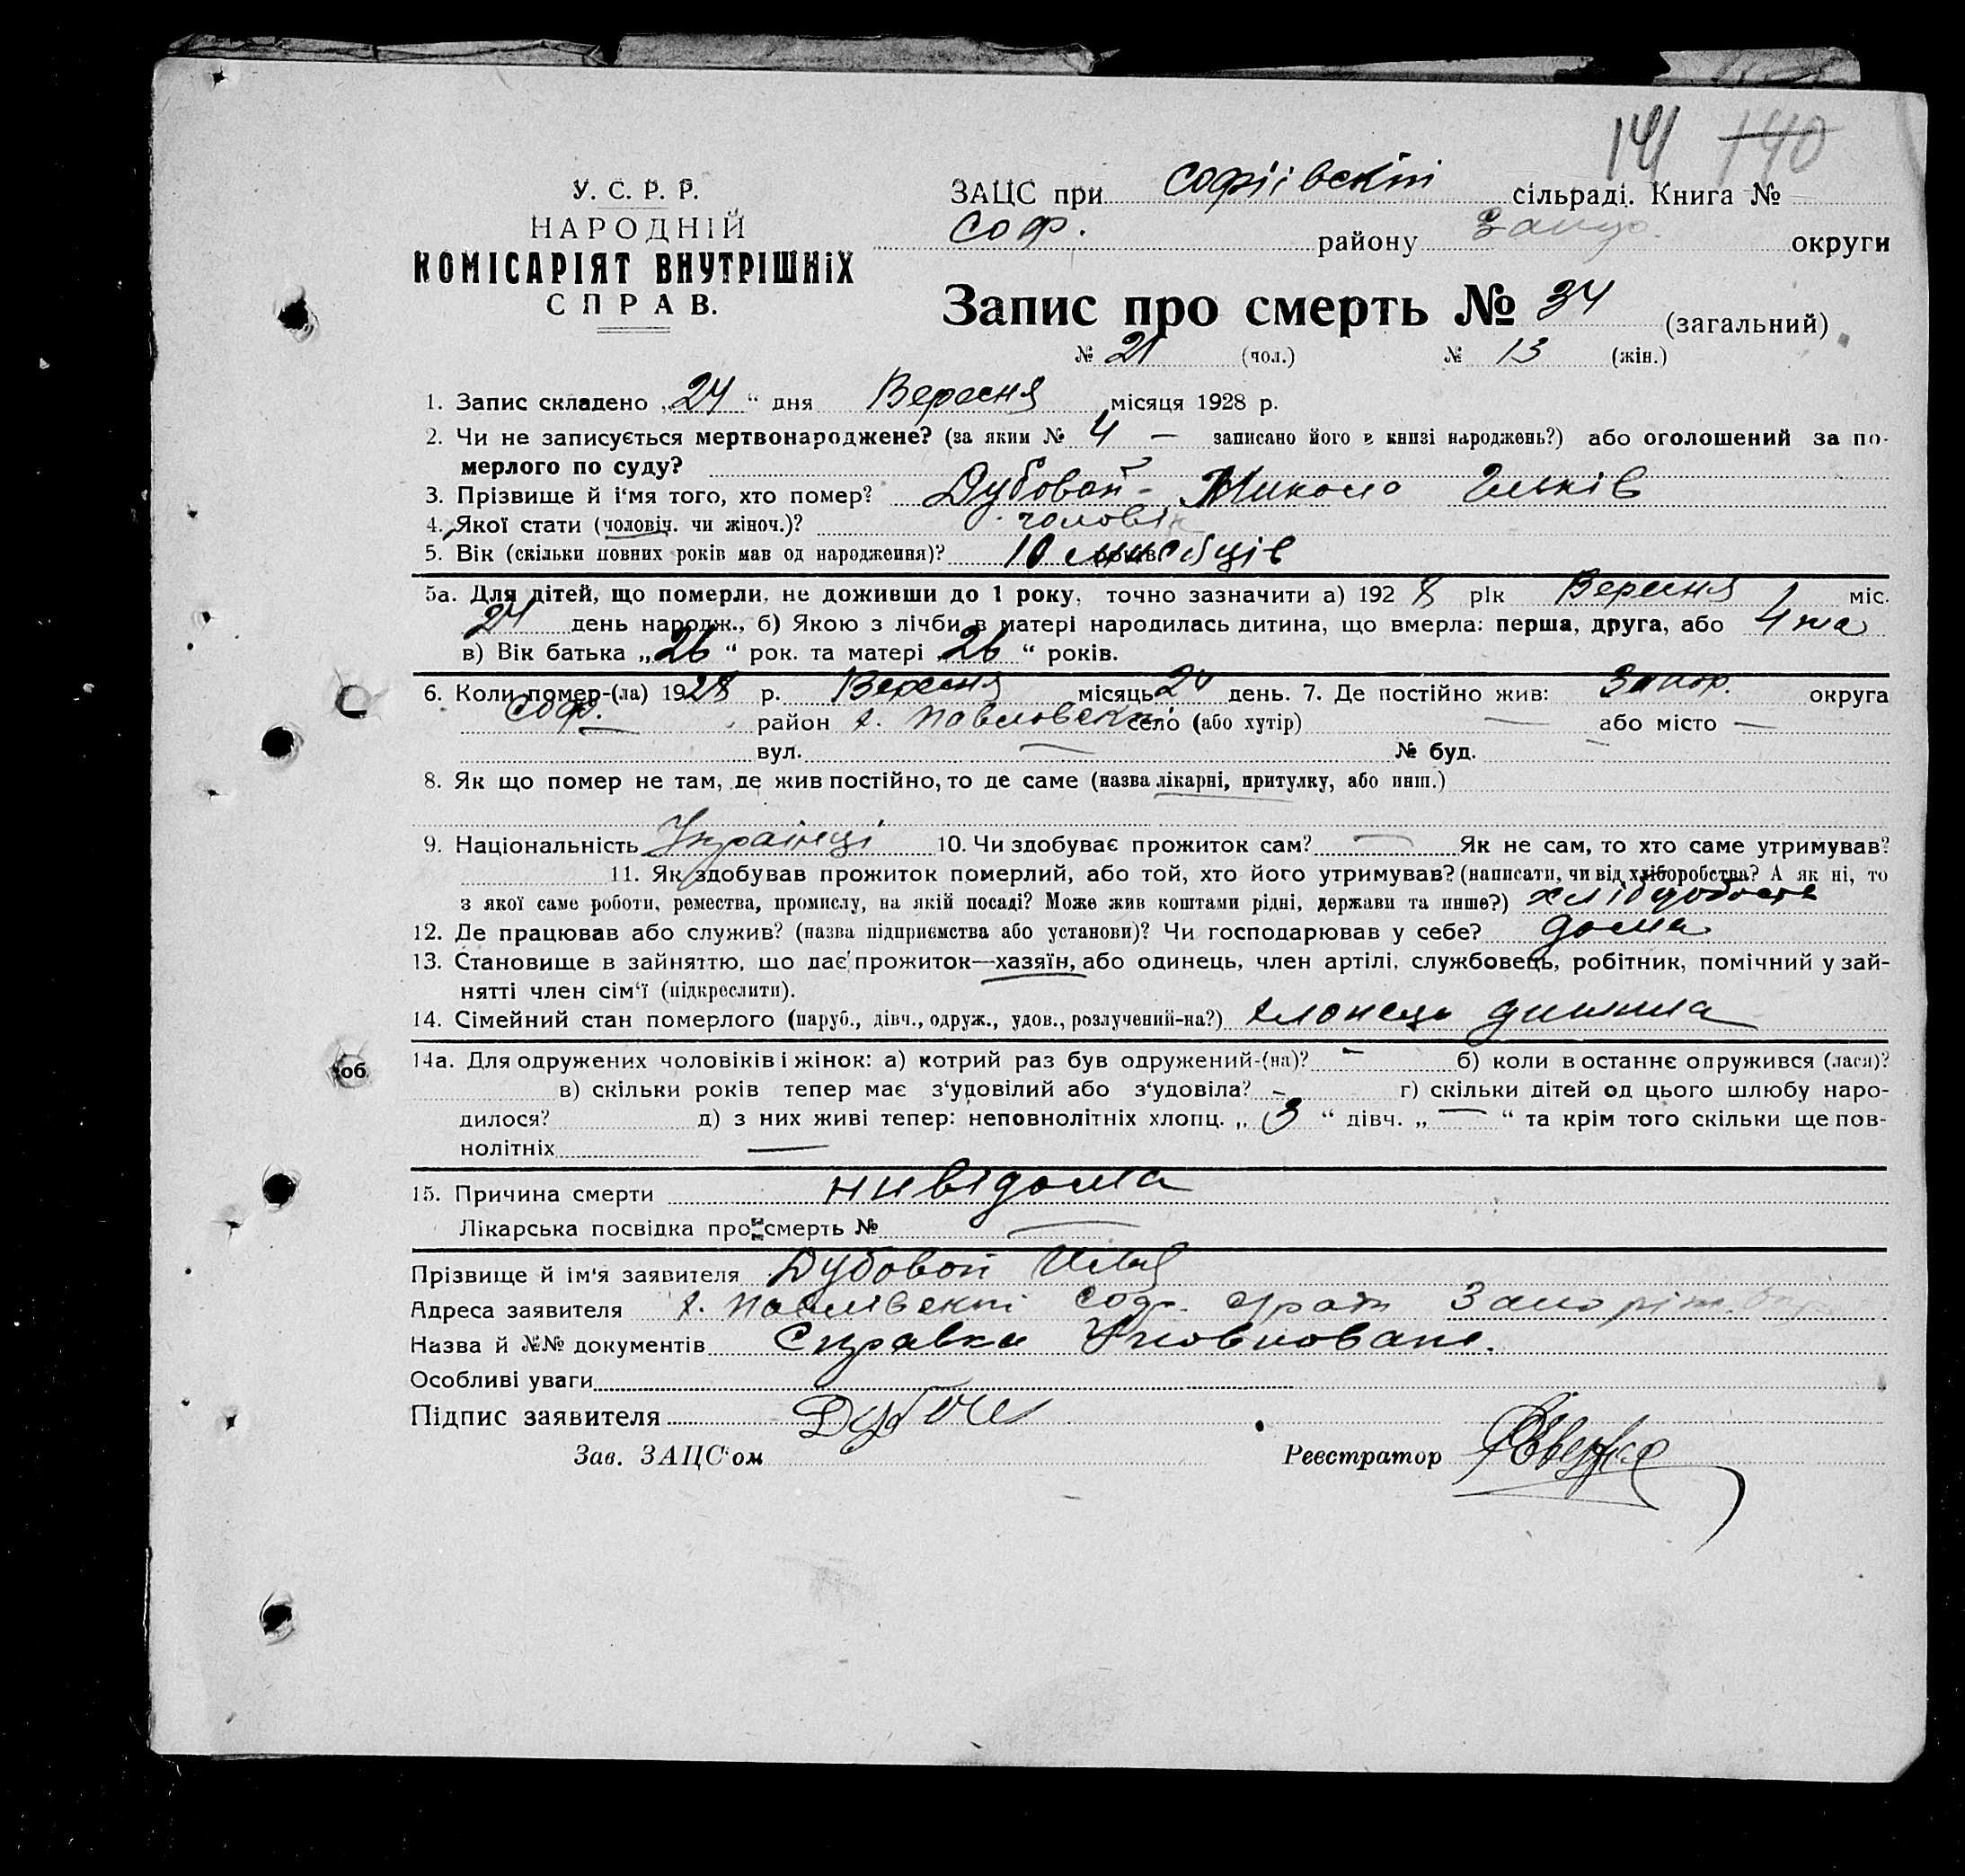 141 140
У. С. Р. Р.
НАРОДНІЙ
КОМІСАРІЯТ ВНУТРІШНІХ
СПРАВ.
ЗАЦС при Софіївскій сільраді. Книга №
Соф. району Запор. округи
Запис про смерть № 34 (загальний)
№ 21 (чол.) № 13 (жін.)
1. Запис складено „24“ дня Вересня місяця 1928 р.
2. Чи не записується мертвонароджене? (за яким № 4 — записано його в книзі народжень?) або оголошений за по-
мерлого по суду?
3. Прізвище й і‘мя того, хто помер? Дубовой - Микола Ильків
4. Якої стати (чоловіч. чи жіноч.)? чоловік
5. Вік (скільки повних років мав од народження)? 10 місяців
5а. Для дітей, що померли, не доживши до 1 року, точно зазначити а) 1928 рік Вересня міс.
24 день народж., б) Якою з лічби в матері народилась дитина, що вмерла: перша, друга, або 4та
в) Вік батька „26“ рок. та матері „26“ років.
6. Коли помер-(ла) 1928 р. Вересня місяць 24 день. 7. Де постійно жив: Запор. округа
Соф. район х. Павловский село (або хутір) — або місто —
вул. — № буд. —
8. Як що помер не там, де жив постійно, то де саме (назва лікарні, притулку, або инш.)
9. Національність Українці 10. Чи здобуває прожиток сам? — Як не сам, то хто саме утримував?
11. Як здобував прожиток померлий, або той, хто його утримував? (написати, чи від хліборобства? А як ні, то
з якої саме роботи, ремества, промислу, на якій посаді? Може жив коштами рідні, держави та инше?)
12. Де працював або служив? (назва підприємства або установи)? Чи господарював у себе? дома
13. Становище в зайняттю, що дає прожиток—хазяїн, або одинець, член артілі, службовець, робітник, помічний у зай-
нятті член сім‘ї (підкреслити).
14. Сімейний стан померлого (паруб., дівч., одруж., удов., розлучений-на?) хлопець дитина
14а. Для одружених чоловіків і жінок: а) котрий раз був одружений-(на)? — б) коли востаннє одружився (лася)?
в) скільки років тепер має з‘удовілий або з‘удовіла? — г) скільки дітей од цього шлюбу наро-
дилося? д) з них живі тепер: неповнолітніх хлопц. „3“ дівч. „—“ та крім того скільки ще пов-
нолітніх —
об.
15. Причина смерти нивідома
Лікарська посвідка про смерть № —
Прізвище й ім‘я заявителя Дубовой Илья
Адреса заявителя х. Павлівскій Соф. Запоріж.
Назва й №№ документів Справка
Особливі уваги
Підпис заявителя Дубовий
Зав. ЗАЦС‘ом Реєстратор